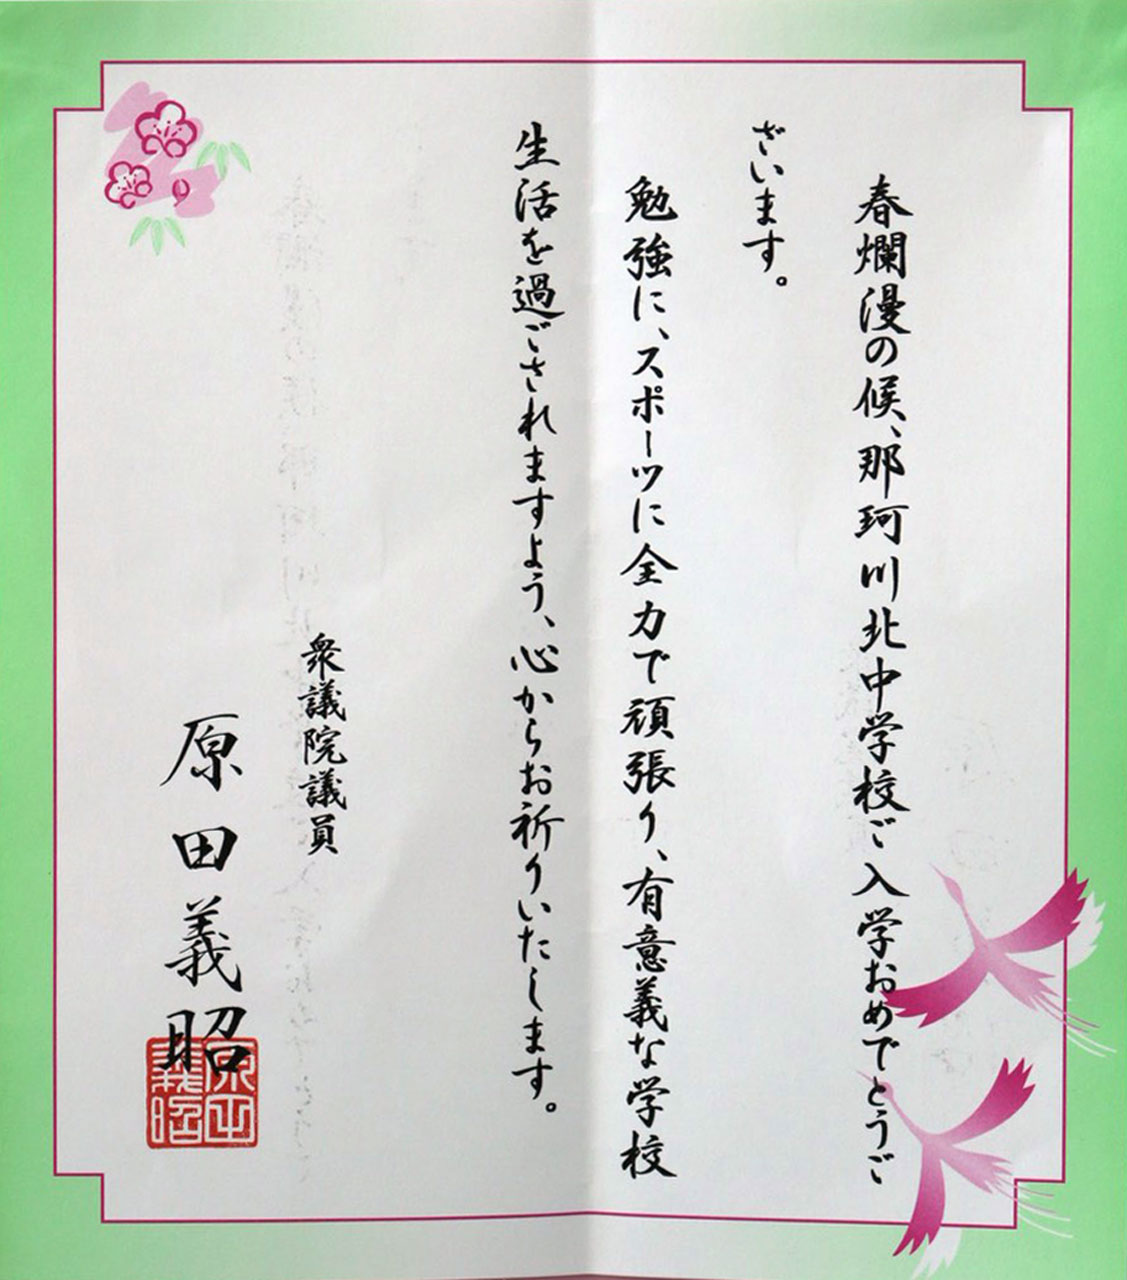 春爛漫の候、那珂川北中学校ご入学おめでとうご
ざいます。
勉強に、スポーツに全力で頑張り、有意義な学校
生活を過ごされますよう、心からお祈りいたします。
衆議院議員
原田義昭
原田
義昭